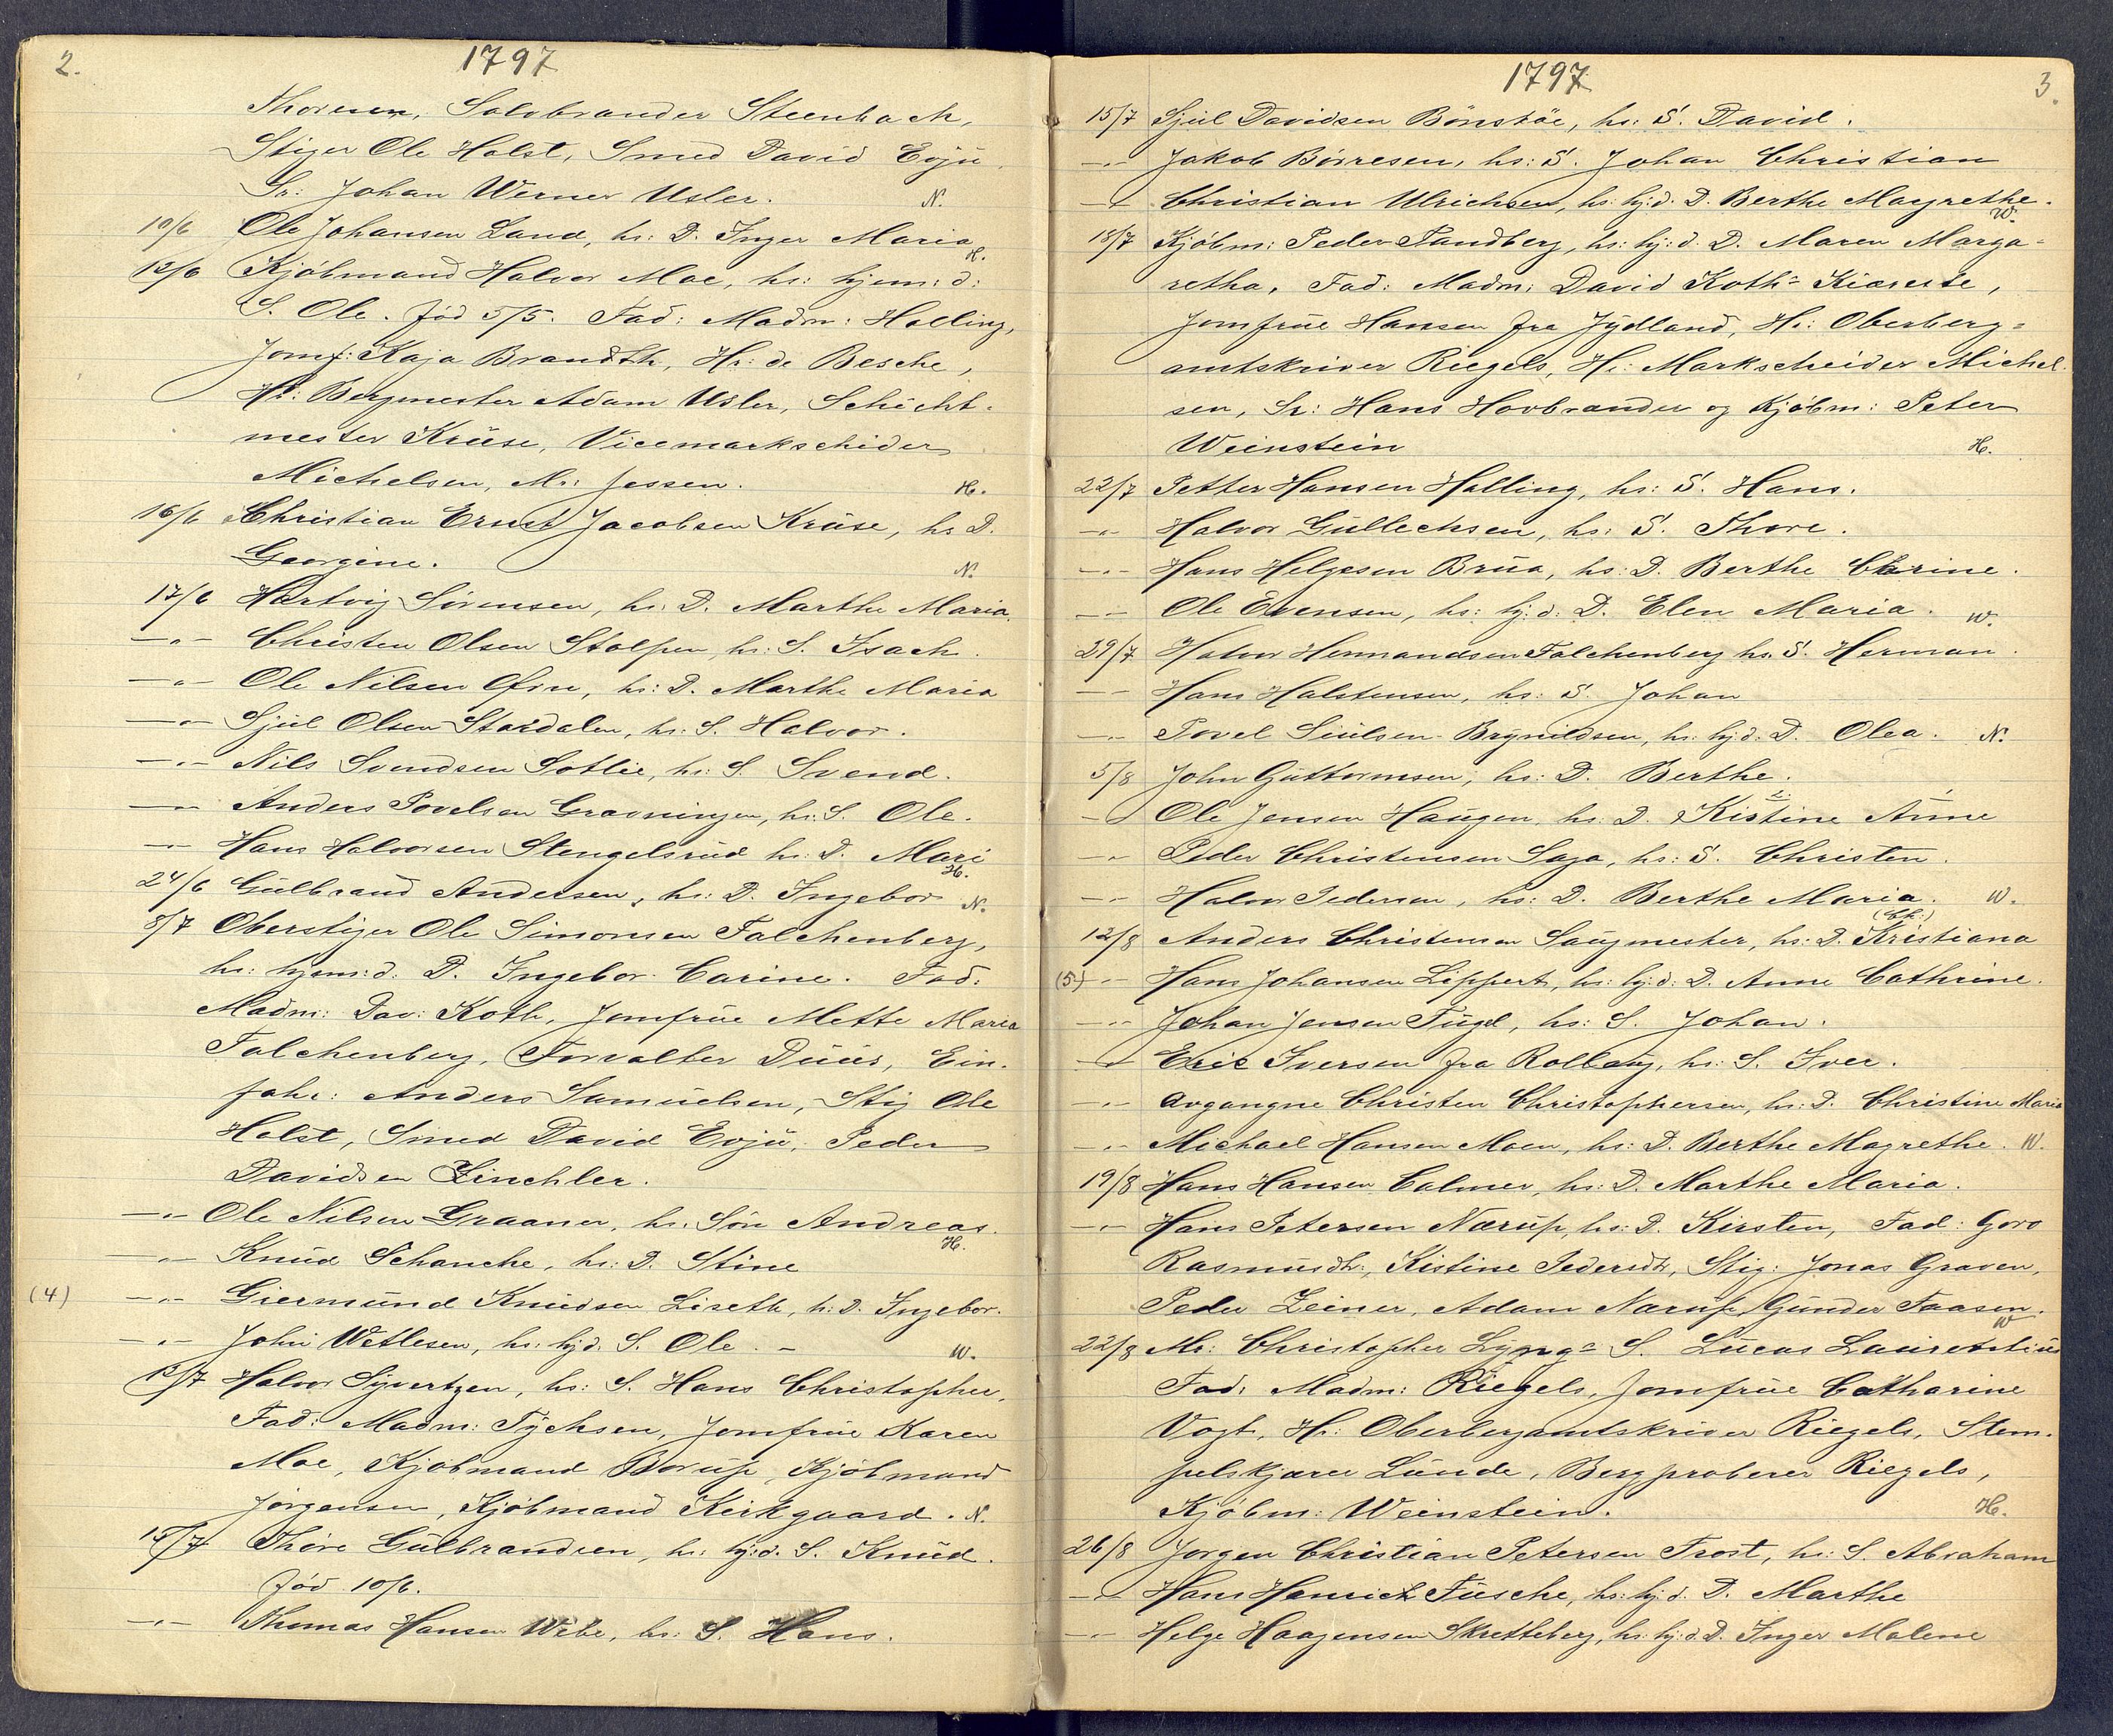 2.
1797
Thoresen, Solvbrander Steenbach,
Stiger Ole Holst, Smed David Evju,
Sr: Johan Werner Usler. N.
10/6 Ole Johansen Land, hs: D. Inger Maria H.
12/6 Kjöbmand Halvor Moe, hs: hjem: d:
S. Ole. Föd 5/5. Fad: Madm: Holling,
Jomf: Kaja Brandth, Hr: de Besche,
Hr: Bergmester Adam Usler, Schicht-
mester Krüse, Vicemarkscheider
Michelsen, Mr: Jessen. H.
16/6 Christian Ernst Jacobsen Krüse, hs D.
Georgine. N.
17/6 Hartvig Sörensen, hs: D. Marthe Maria.
–„– Christen Olsen Stolpen, hs: S. Isach.
–„– Ole Nilsen Öfin, hs: D. Marthe Maria
–„– Sjul Olsen Stordalen, hs: S. Halvor.
–„– Nils Svendsen Sotlie, hs: S. Svend.
–„– Anders Povelsen Gravningen, hs: S. Ole.
–„– Hans Halvorsen Stengelsrüd hs: D. Mari H.
24/6 Gülbrand Andersen, hs: D. Ingebor N.
8/7 Oberstiger Ole Simonsen Falchenberg,
hs: hjem: d: D. Ingebor Carine. Fad:
Madm: Dav: Koth, Jomfrüe Mette Maria
Falchenberg, Forvalter Düüs, Ein-
fahr: Anders Samüelsen, Stig Ole
Holst, Smed David Evjü, Peder
Davidsen Zinchler.
–„– Ole Nilsen Graaner, hs. Sön Andreas. H.
–„– Knüd Schanche, hs: D. Stine
(4) –„– Giermünd Knüdsen Liseth, h: D. Ingebor.
–„– John Wetlesen, hs: hj: d. S. Ole. – W.
12/7 Halvor Syvertzen, hs: S. Hans Christopher,
Fad: Madm: Tychsen, Jomfrüe Karen
Moe, Kjöbmand Borüp, Kjöbmand
Jörgensen, Kjöbmand Kirkgaard. N.
15/7 Thöre Gülbrandsen, hs: hj: d. S. Knüd.
Föd 10/6.
–„– Thomas Hansen Wibe, hs: S. Hans.
1797
3.
15/7 Sjül Davidsen Bönsköe, hs: S. David.
–„– Jakob Börresen, hs: S. Johan Christian
–„– Christian Ulrichsen, hs: hj: d. D. Berthe Magrethe. W.
18/7 Kjöbm: Peder Sandberg, hs: hj: d. D. Maren Marga-
retha, Fad: Madm: David Koth- Kiæreste,
Jomfrüe Hansen fra Jydland, Hr: Oberberg-
amtskriver Riegels, Hr: Markscheider Michel-
sen, Sr: Hans Hovbrander og Kjöbm: Peter
Weinstein H.
22/7 Petter Hansen Holling, hs: S. Hans.
–„– Halvor Güllechsen, hs: S. Thore.
–„– Hans Helgesen Brüa, hs: D. Berthe Carine.
–„– Ole Evensen, hs: hj: d: D. Elen Maria. W.
29/7 Halvor Hermandsen Falchenberg hs: S. Herman.
–„– Hans Halstensen, hs: S. Johan
–„– Povel Siülsen Brynildsen, hs: hj: d: D. Olea. N.
5/8 John Güttormsen, hs: D. Berthe.
–„– Ole Jensen Haügen, hs: D. Kistine Anne
–„– Peder Christensen Saga, hs: S. Christen.
–„– Halvor Pedersen, hs: D. Berthe Maria. W.
12/8 Anders Christensen Saugmester, hs: D. Kristiana (Ch:)
(5) –„– Hans Johansen Lippert, hs: hj: d: D. Anne Cathrine.
–„– Johan Jensen Fügel, hs: S. Johan.
–„– Eric Iversen fra Rollaug, hs: S. Iver.
–„– Avgangne Christen Christophersen, hs: D. Christine Maria
–„– Michael Hansen Moen, hs: D. Berthe Magrethe. W.
19/8 Hans Hansen Calmer, hs: D. Marthe Maria.
–„– Hans Petersen Nærüp, hs: D. Kirsten, Fad: Goro
Rasmüsdtr, Kistine Pedersdtr, Stig: Jonas Graven,
Peder Zeiner, Adam Nærüp, Günder Faasen. W
22/8 Mr: Christopher Lyng- S. Lücas Laürentiüs
Fad: Madm: Riegels, Jomfrüe Catharine
Vogt, Hr: Oberbergamtskriver Riegels, Stem-
pelskjærer Lünde, Bergproberer Riegels,
Kjöbm: Weinstein. H.
26/8 Jörgen Christian Petersen Frost, hs: S. Abraham
–„– Hans Henrich Füsche, hs: hj: d. D. Marthe
–„– Helge Haagensen Skretteberg, hs: hj: d. D. Inger Malene